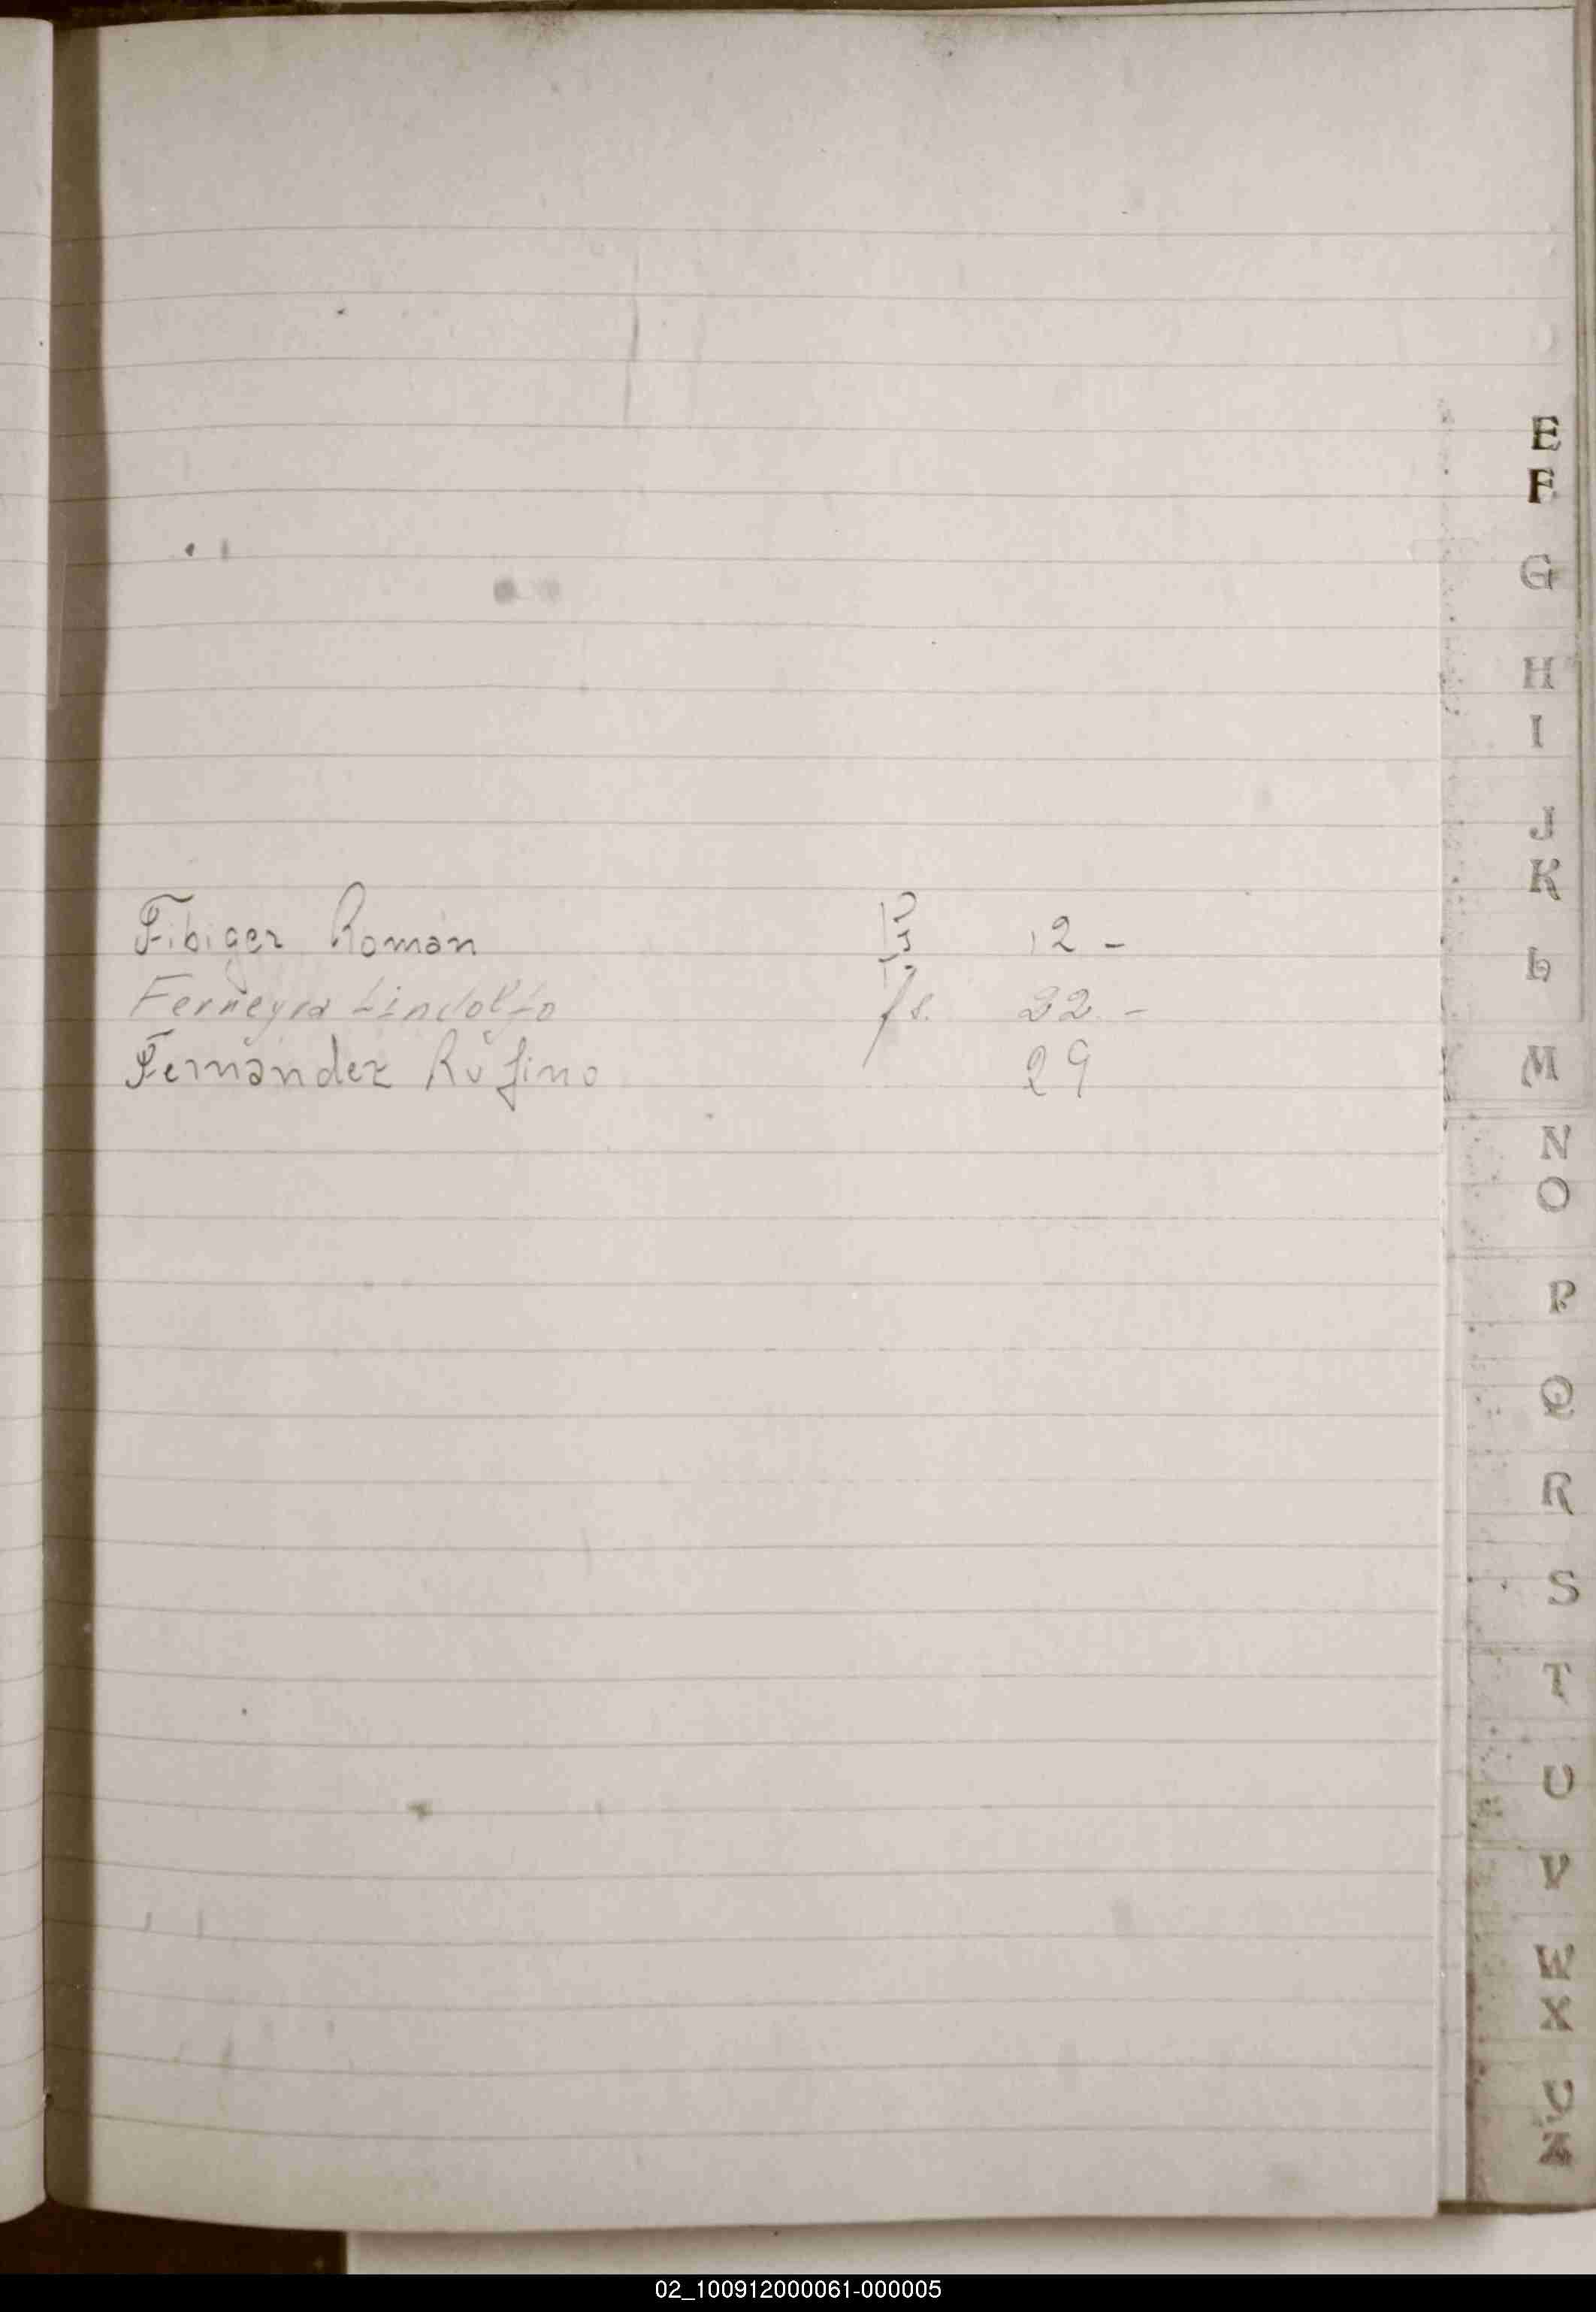 E
F
G
H
I
J
K
L
M
N
O
P
Q
R
S
T
U
V
W
X
Z
Fibiger Román 12 -
Ferreyra Lindolfo fs. 22. -
Fernández Rufino 29
02_100912000061-000005